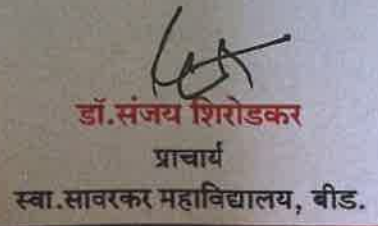 डॉ.संजय शिरोडकर
प्राचार्य
स्वा.सावरकर महाविद्यालय, बीड.